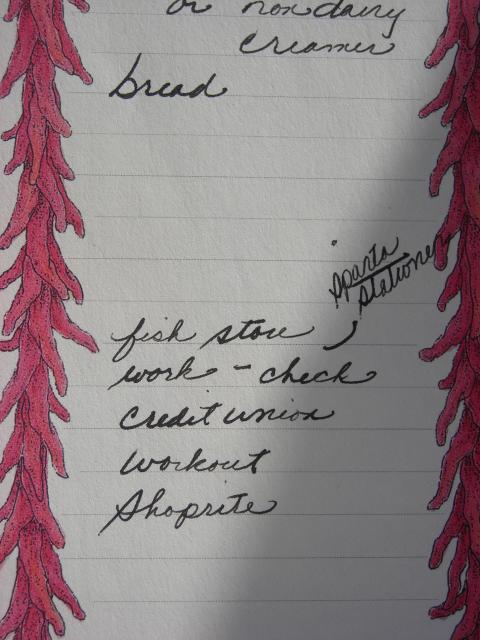 or nondairy
creamer
bread
Sparta
Stationery
fish store
work - check
credit union
workout
Shoprite